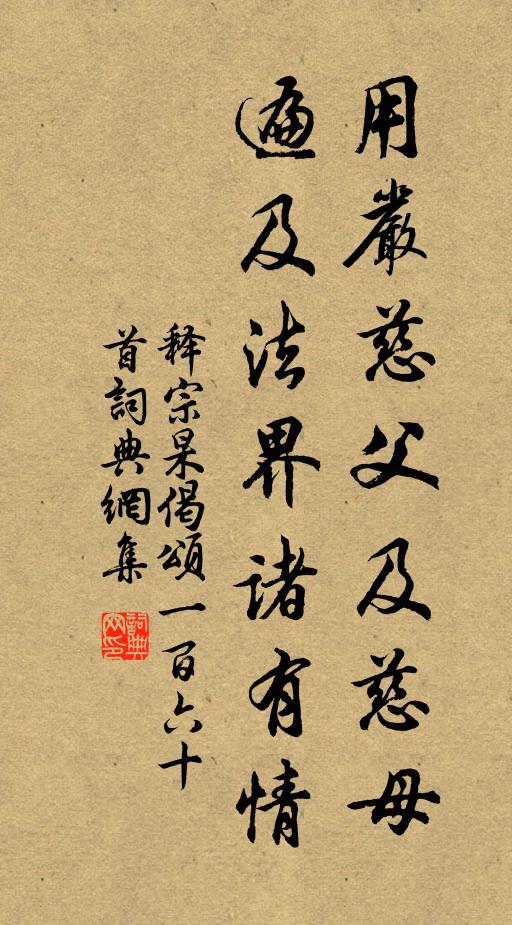 用嚴慈父及慈母
遍及法界諸有情
释宗杲偈頌一百六十
首詞典網集
詞典網印